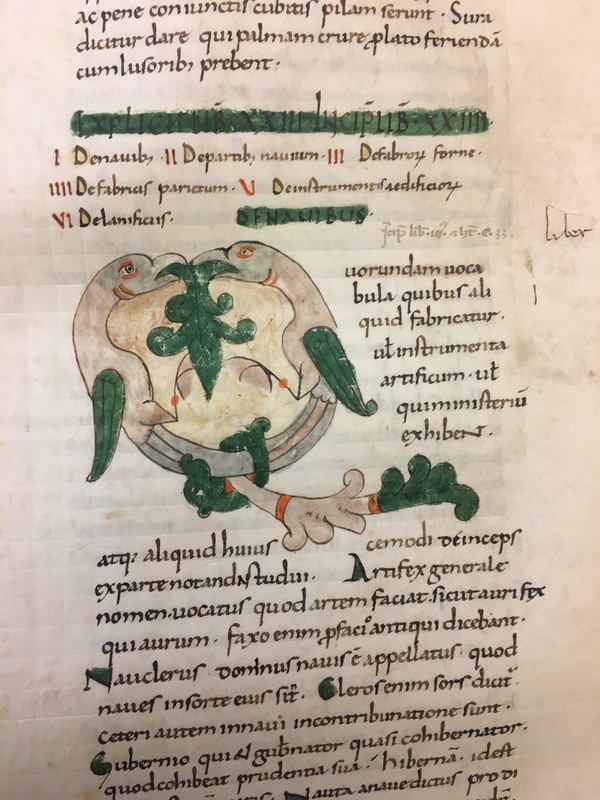 ac pene coniunctis cubitis pilam serunt · Sura
dicitur dare qui palmam crure plato feriendā
cumlusorib; prebent ·
EXPLICIT LIB XXIII INCIPLIB · XXIIII
I Denauib; · II Departib; nauium · III Defabrorꝝ forne ·
IIII Defabricis parietum · V Deinstrumentis aedificiorꝝ
VI Delanificus · DENAUIBUS
liber
uorundam uoca
bula quibus ali
quid fabricatur ·
ul̄ instrumenta
artificum · ul̄
qui ministeriū
exhibent ·
atq; aliquid huius cemodi deinceps
exparte notandstudui · Artifex generale
nomen uocatus quod artem faciat · sicut aurifex
qui aurum · faxo enim ꝑfacio antiqui dicebant ·
Nauclerus dominus nauis ē appellatus · quod
naues insorte eius sīt · Cleros enim sors dicit̄ ·
ceteri autem innaui incontribunatione sunt ·
Gubernio qui & gub̄nator quasi cohibernator ·
quodcohibeat prudentia sua · hibernā · idest
Nauta anaue dictus pro di